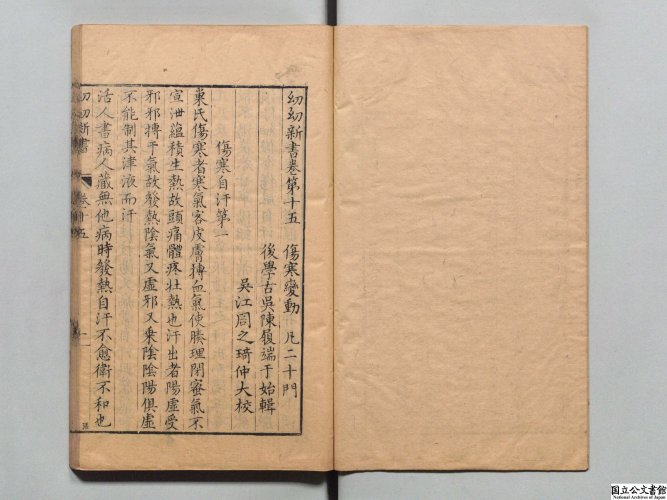 幼幼新書卷第十五 傷寒變動 凡二十門
後學古吳陳履端于始輯
吳江周之琦仲大校
傷寒自汗第一
巢氏傷寒者寒氣客皮膚搏血氣使腠理閉密氣不
宣泄蘊積生熱故頭痛體疼壯熱也汗出者陽虛受
邪邪搏于氣故發熱陰氣又虛邪又乗陰陰陽俱虛
不能制其津液而汗
活人書病人藏無他病時發熱自汗不愈衛不和也
幼幼新書 卷十五 一
国立公文書館
National Archives of Japan